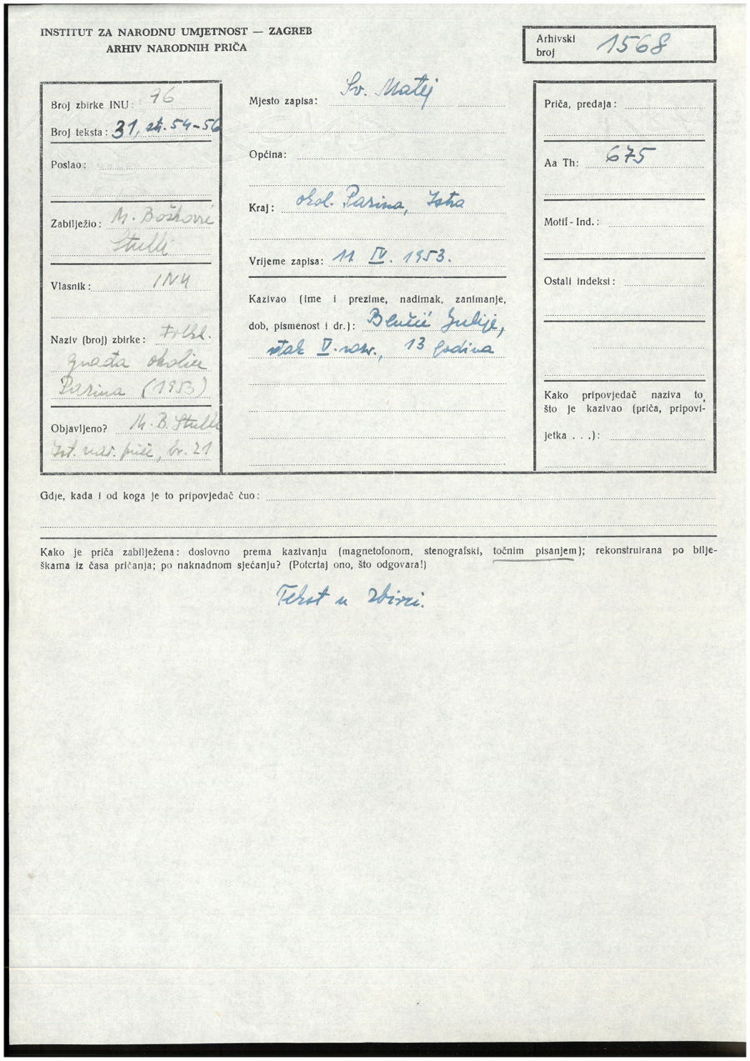 INSTITUT ZA NARODNU UMJETNOST — ZAGREB
ARHIV NARODNIH PRIČA
Arhivski broj 1568
Broj zbirke INU: 76
Broj teksta: 31, str. 54-56
Poslao:
Zabilježio: M. Bošković
Stulli
Vlasnik: INU
Naziv (broj) zbirke: Folkl.
građa okolice
Pazina (1953)
Objavljeno? M. B. Stulli
Ist. nar. priče, br. 21
Mjesto zapisa: Sv. Matej
Općina:
Kraj: okol. Pazina, Istra
Vrijeme zapisa: 11. IV. 1953.
Kazivao (ime i prezime, nadimak, zanimanje,
dob, pismenost i dr.): Julije,
đak V. razr., 13 godina
Priča, predaja:
Aa Th: 675
Motif - Ind.:
Ostali indeksi:
Kako pripovjedač naziva to
što je kazivao (priča, pripovi-
jetka . . .):
Gdje, kada i od koga je to pripovjedač čuo:
Kako je priča zabilježena: doslovno prema kazivanju (magnetofonom, stenografski, točnim pisanjem); rekonstruirana po bilje-
škama iz časa pričanja; po naknadnom sjećanju? (Potcrtaj ono, što odgovara!)
Tekst u zbirci.